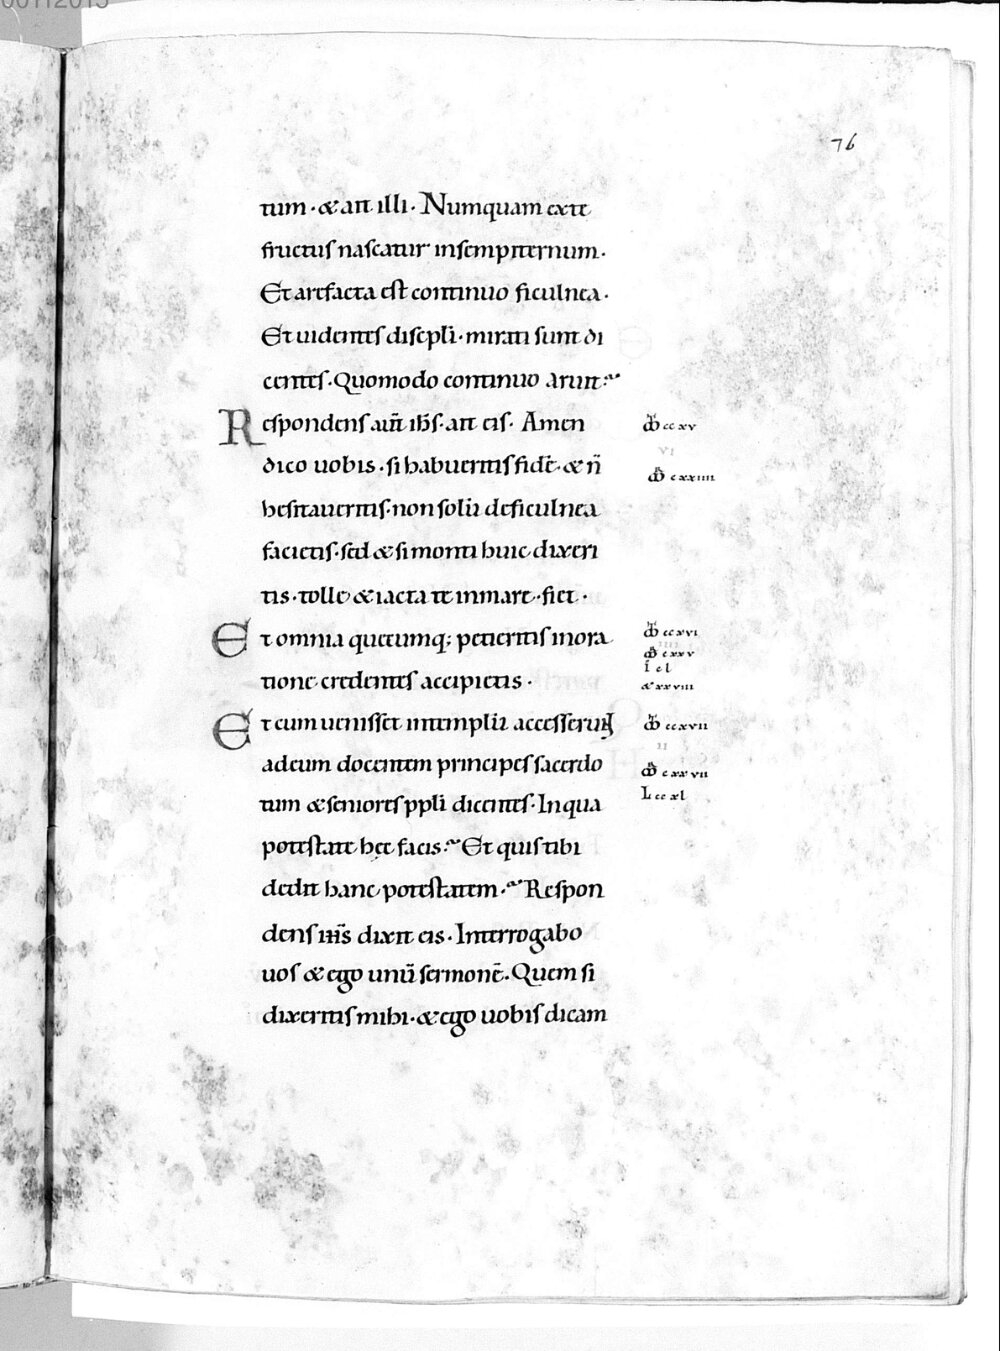 76
tum · & ait illi · Numquam ex te
fructus nascatur insempiternum ·
Et arefacta est continuo ficulnea ·
Et uidentes discipli · mirati sunt di
centes · Quomodo continuo aruit
Respondens aut̄ ih̄s · ait eis · Amen
dico uobis · si habueritis fidē · & n̄
hesitaueritis · non solū deficulnea
facietis · sed & si monti huic dixeri
tis · tolle & iacta te inmare · fiet ·
Et omnia quecumq; petieritis inora
tione credentes accipietis ·
Et cum uenisset intemplū accesserunt
adeum docentem principes sacerdo
tum & seniores ppli dicentes · Inqua
potestate hec facis Et quis tibi
dedit hanc potestatem · Respon
dens ih̄s dixit eis · Interrogabo
uos & ego unū sermonē · Quem si
dixeritis mihi · & ego uobis dicam
cc xv
c xxiiii
cc xvi
c xx v
I c l
& xx viii
cc xvii
c xx vii
L cc xl